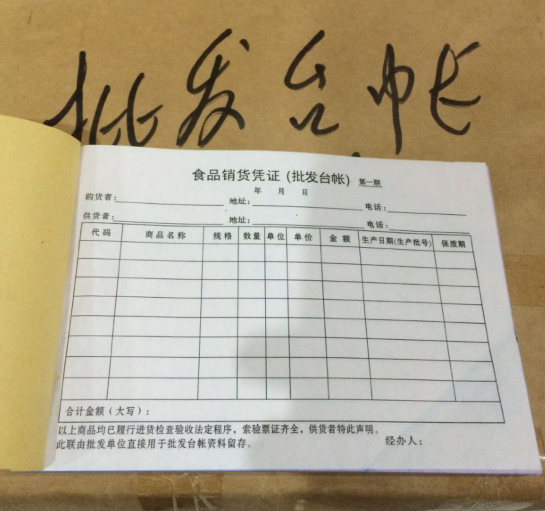 批发台帐
食品销货凭证(批发台帐) 第一联
年 月 日
购货者: 地址: 电话:
供货者: 地址: 电话:
代码 商品名称 规格 数量 单位 单价 金额 生产日期(生产批号) 保质期
合计金额(大写):
以上商品均已履行进货检查验收法定程序,索验票证齐全,供货者特此声明。
此联由批发单位直接用于批发台帐资料留存。 经办人: